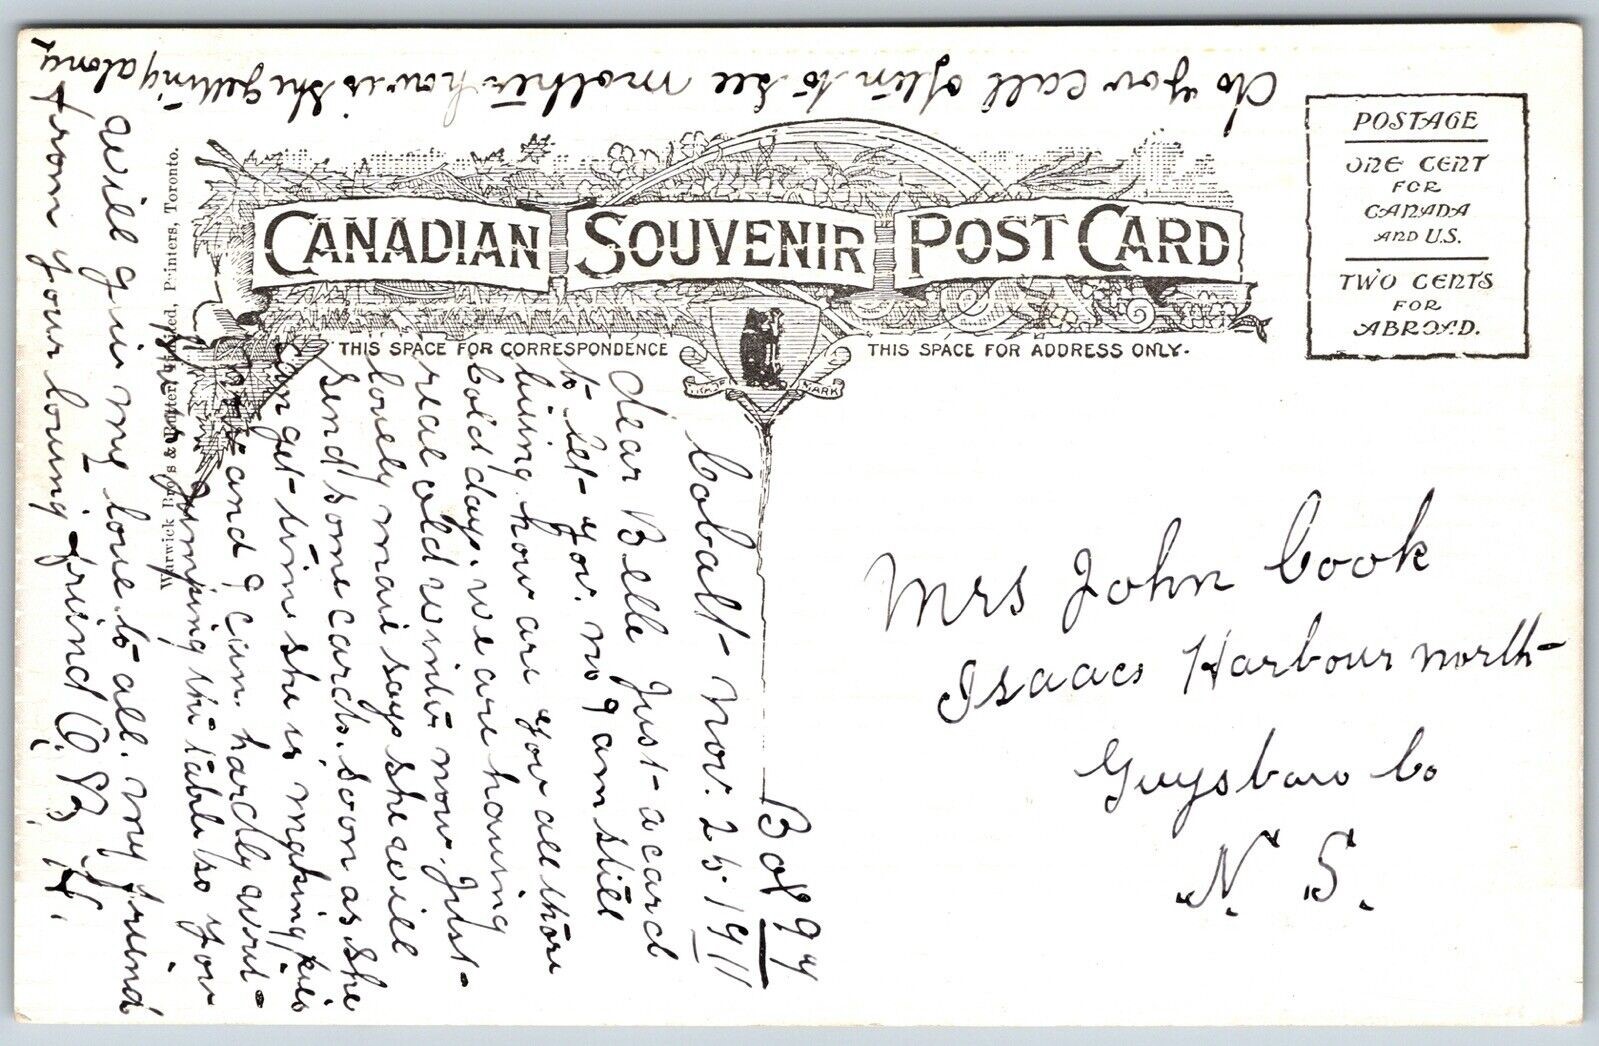 CANADIAN SOUVENIR POST CARD
THIS SPACE FOR CORRESPONDENCE
THIS SPACE FOR ADDRESS ONLY.
TRADE MARK
POSTAGE
ONE CENT
FOR
CANADA
AND U.S.
TWO CENTS
FOR
ABROAD.
Warwick Bro's & Rutter, Limited, Printers, Toronto.
Box 94
Cobalt Nov. 25 1911
dear Belle Just a card
to let you no I am still
living. how are you all those
cold days. we are having
real old winter now. Just
lovely mai says she will
send some cards. soon as she
can get time she is making pies
now and I can hardly writ-
Jumping the table so you
will giv my love to all. my friend
from your loving friend
do you call often to see mother how is she getting along
Mrs John Cook
Isaacs Harbour north
Guysboro Co
N. S.